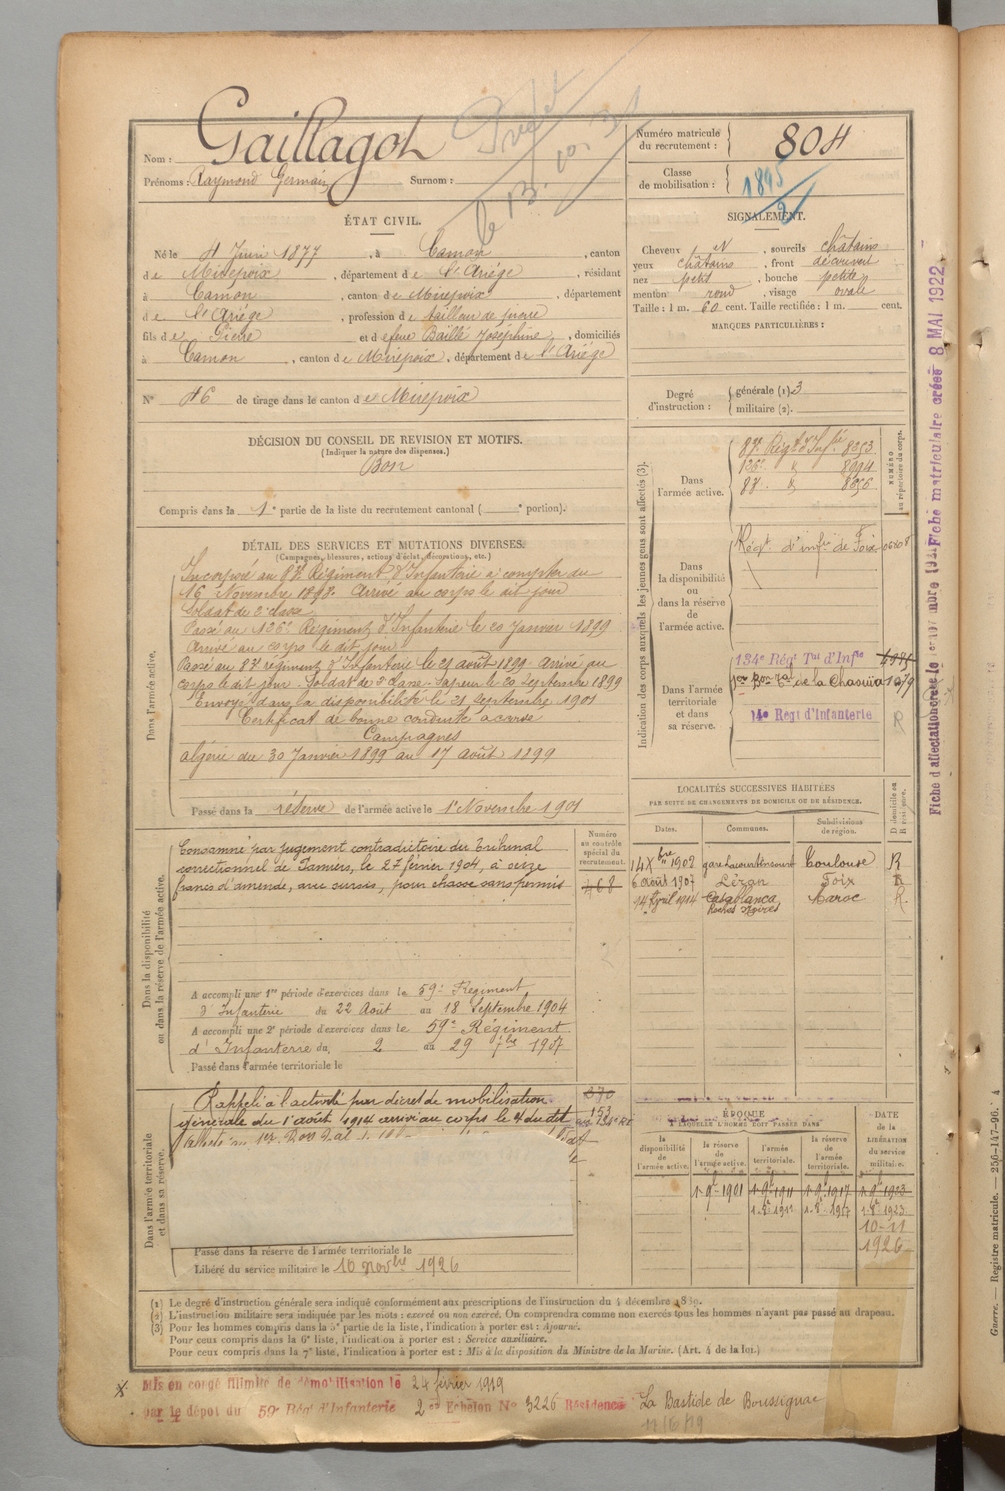 Nom : Gaillagot
Prénoms : Raymond Germain Surnom :
Numéro matricule du recrutement : 804
Classe de mobilisation : 1895
2
ÉTAT CIVIL.
Né le 4 Juin 1877, à Camon, canton
de Mirepoix, département de l'Ariége, résidant
à Camon, canton de Mirepoix, département
de l'Ariége, profession de tailleur de pierre
fils de Pierre et de feue Baillé Joséphine, domiciliés
à Camon, canton de Mirepoix, département de l'Ariége
N° 46 de tirage dans le canton de Mirepoix
SIGNALEMENT.
Cheveux N, sourcils châtains
yeux châtains, front découvert
nez petit, bouche petite
menton rond, visage ovale
Taille : 1 m. 60 cent. Taille rectifiée : 1 m. cent.
MARQUES PARTICULIÈRES :
Degré d'instruction : générale (1) 3
militaire (2).
DÉCISION DU CONSEIL DE REVISION ET MOTIFS.
(Indiquer la nature des dispenses.)
Bon
Compris dans la 1e partie de la liste du recrutement cantonal ( e portion).
DÉTAIL DES SERVICES ET MUTATIONS DIVERSES.
(Campagnes, blessures, actions d'éclat, décorations, etc.)
Dans l'armée active.
Incorporé au 87e Régiment d'Infanterie à compter du
16 Novembre 1898. Arrivé au corps le dit jour
Soldat de 2e classe
Passé au 126e Régiment d'Infanterie le 20 Janvier 1899
Arrivé au corps le dit jour
Passé au 87e régiment d'Infanterie le 21 août 1899 Arrivé au
corps le dit jour. Soldat de 2e classe. Sapeur le 20 Septembre 1899
Envoyé dans la disponibilité le 21 Septembre 1901
Certificat de bonne conduite accordé
Campagnes
Algérie du 30 Janvier 1899 au 17 août 1899
Passé dans la réserve de l'armée active le 1er Novembre 1901
Indication des corps auxquels les jeunes gens sont affectés (3).
NUMÉRO au répertoire du corps.
Dans l'armée active.
87e Régt d'Infie 8253
126e " 8994
87e " 8256
Dans la disponibilité ou dans la réserve de l'armée active.
Régt d'infie de Foix
Dans l'armée territoriale et dans sa réserve.
134e Régt Tal d'Infie
1er Bon Tal de la Chaouïa 1079
14e Régt d'Infanterie
R
LOCALITÉS SUCCESSIVES HABITÉES
PAR SUITE DE CHANGEMENTS DE DOMICILE OU DE RÉSIDENCE.
Dates. Communes. Subdivisions de région. D domicile ou R résidence.
14 Xbre 1902 Toulouse R
6 août 1907 Lézan Foix R
14 Avril 1914 Casablanca Maroc R
Roches Noires
Dans la disponibilité ou dans la réserve de l'armée active.
Numéro au contrôle spécial du recrutement.
468
Condamné par jugement contradictoire du Tribunal
correctionnel de Pamiers, le 27 février 1904, à seize
francs d'amende, avec sursis, pour chasse sans permis
A accompli une 1re période d'exercices dans le 59e Régiment
d'Infanterie du 22 Août au 18 Septembre 1904
A accompli une 2e période d'exercices dans le 59e Régiment
d'Infanterie du 2 au 29 7bre 1907
Passé dans l'armée territoriale le
Dans l'armée territoriale et dans sa réserve.
Rappelé à l'activité par décret de mobilisation
générale du 1er août 1914 arrivé au corps le 4 du dit
370
153
ÉPOQUE
À LAQUELLE L'HOMME DOIT PASSER DANS
la disponibilité de l'armée active.
la réserve de l'armée active.
l'armée territoriale.
la réserve de l'armée territoriale.
DATE de la LIBÉRATION du service militaire.
1-9e-1901 1-9e-1911 1-9e-1917 1-9e-1923
1-8e-1923
10-11
1926
Passé dans la réserve de l'armée territoriale le
Libéré du service militaire le 10 novbre 1926
(1) Le degré d'instruction générale sera indiqué conformément aux prescriptions de l'instruction du 4 décembre 1889.
(2) L'instruction militaire sera indiquée par les mots : exercé ou non exercé. On comprendra comme non exercés tous les hommes n'ayant pas passé au drapeau.
(3) Pour les hommes compris dans la 5e partie de la liste, l'indication à porter est : Ajourné.
Pour ceux compris dans la 6e liste, l'indication à porter est : Service auxiliaire.
Pour ceux compris dans la 7e liste, l'indication à porter est : Mis à la disposition du Ministre de la Marine. (Art. 4 de la loi.)
Mis en congé illimité de démobilisation le 24 février 1919
par le dépôt du 59e Régt d'Infanterie 2e Echelon N° 3226 Résidence La Bastide de Boussignac
Fiche matriculaire créée 8 MAI 1922
Guerre. — Registre matricule. — 256-147-96. 4